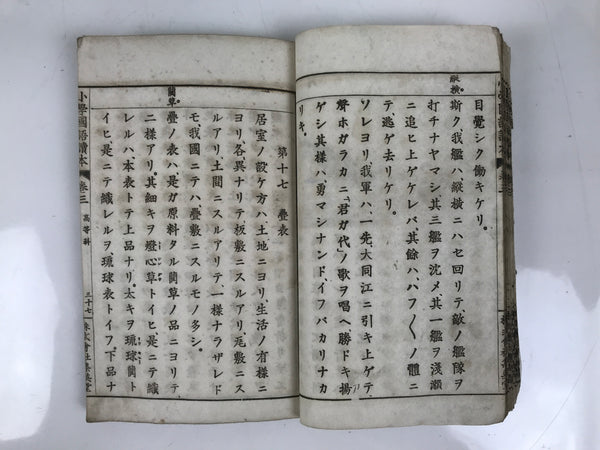 縦横。
目覺シク働キケリ。
斯ク、我艦ハ、縱橫ニハセ回リテ、敵ノ艦隊ヲ
打チナヤマシ、其三艦ヲ沈メ、其一艦ヲ淺瀬
ニ追ヒ上ゲケレバ、其餘ハ、ハフ〳〵ノ體ニ
テ、逃ゲ去リケリ。
ソレヨリ、我軍ハ、一先、大同江ニ引キ上ゲテ、
聲ホガラカニ、「君ガ代」ノ歌ヲ唱ヘ、勝ドキ揚
ゲシ其樣ハ、勇マシナンド、イフバカリナカ
リキ。
第十七 疊表
居室ノ設ケ方ハ、土地ニヨリ、生活ノ有樣ニ
ヨリ、各異ナリテ、板敷ニスルアリ、瓦敷ニス
ルアリ、土間ニスルアリテ、一樣ナラザレド
モ、我國ニテハ、疊敷ニスルモノ多シ。
藺草。
疊ノ表ハ、是ガ原料タル藺草ノ品ニヨリテ、
二樣アリ。其細キヲ燈心草トイヒ、是ニテ織
レルハ、本表トテ上品ナリ。太キヲ琉球藺ト
イヒ、是ニテ織レルヲ、琉球表トイフ、下品ナ
小學國語讀本 卷三 高等科 三十七